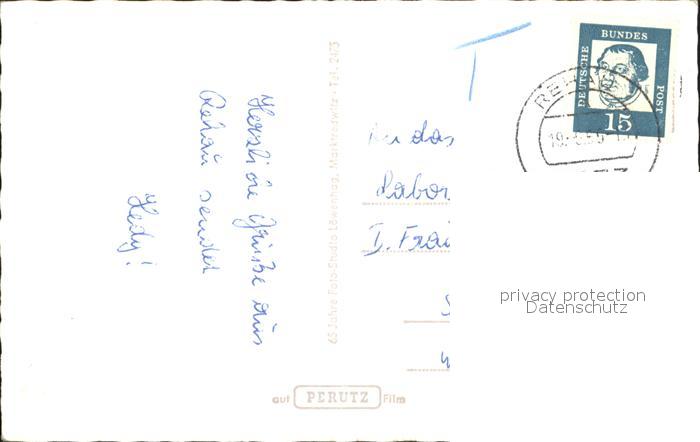 Herzliche Grüße aus
Rehau sendet
Hedy!
65 Jahre Foto-Studio Löwenhag, Marktredwitz · Tel. 2473
An das
Labor
I. Frai
DEUTSCHE
BUNDES
POST
15
REHAU
19.
privacy protection
Datenschutz
auf PERUTZ Film